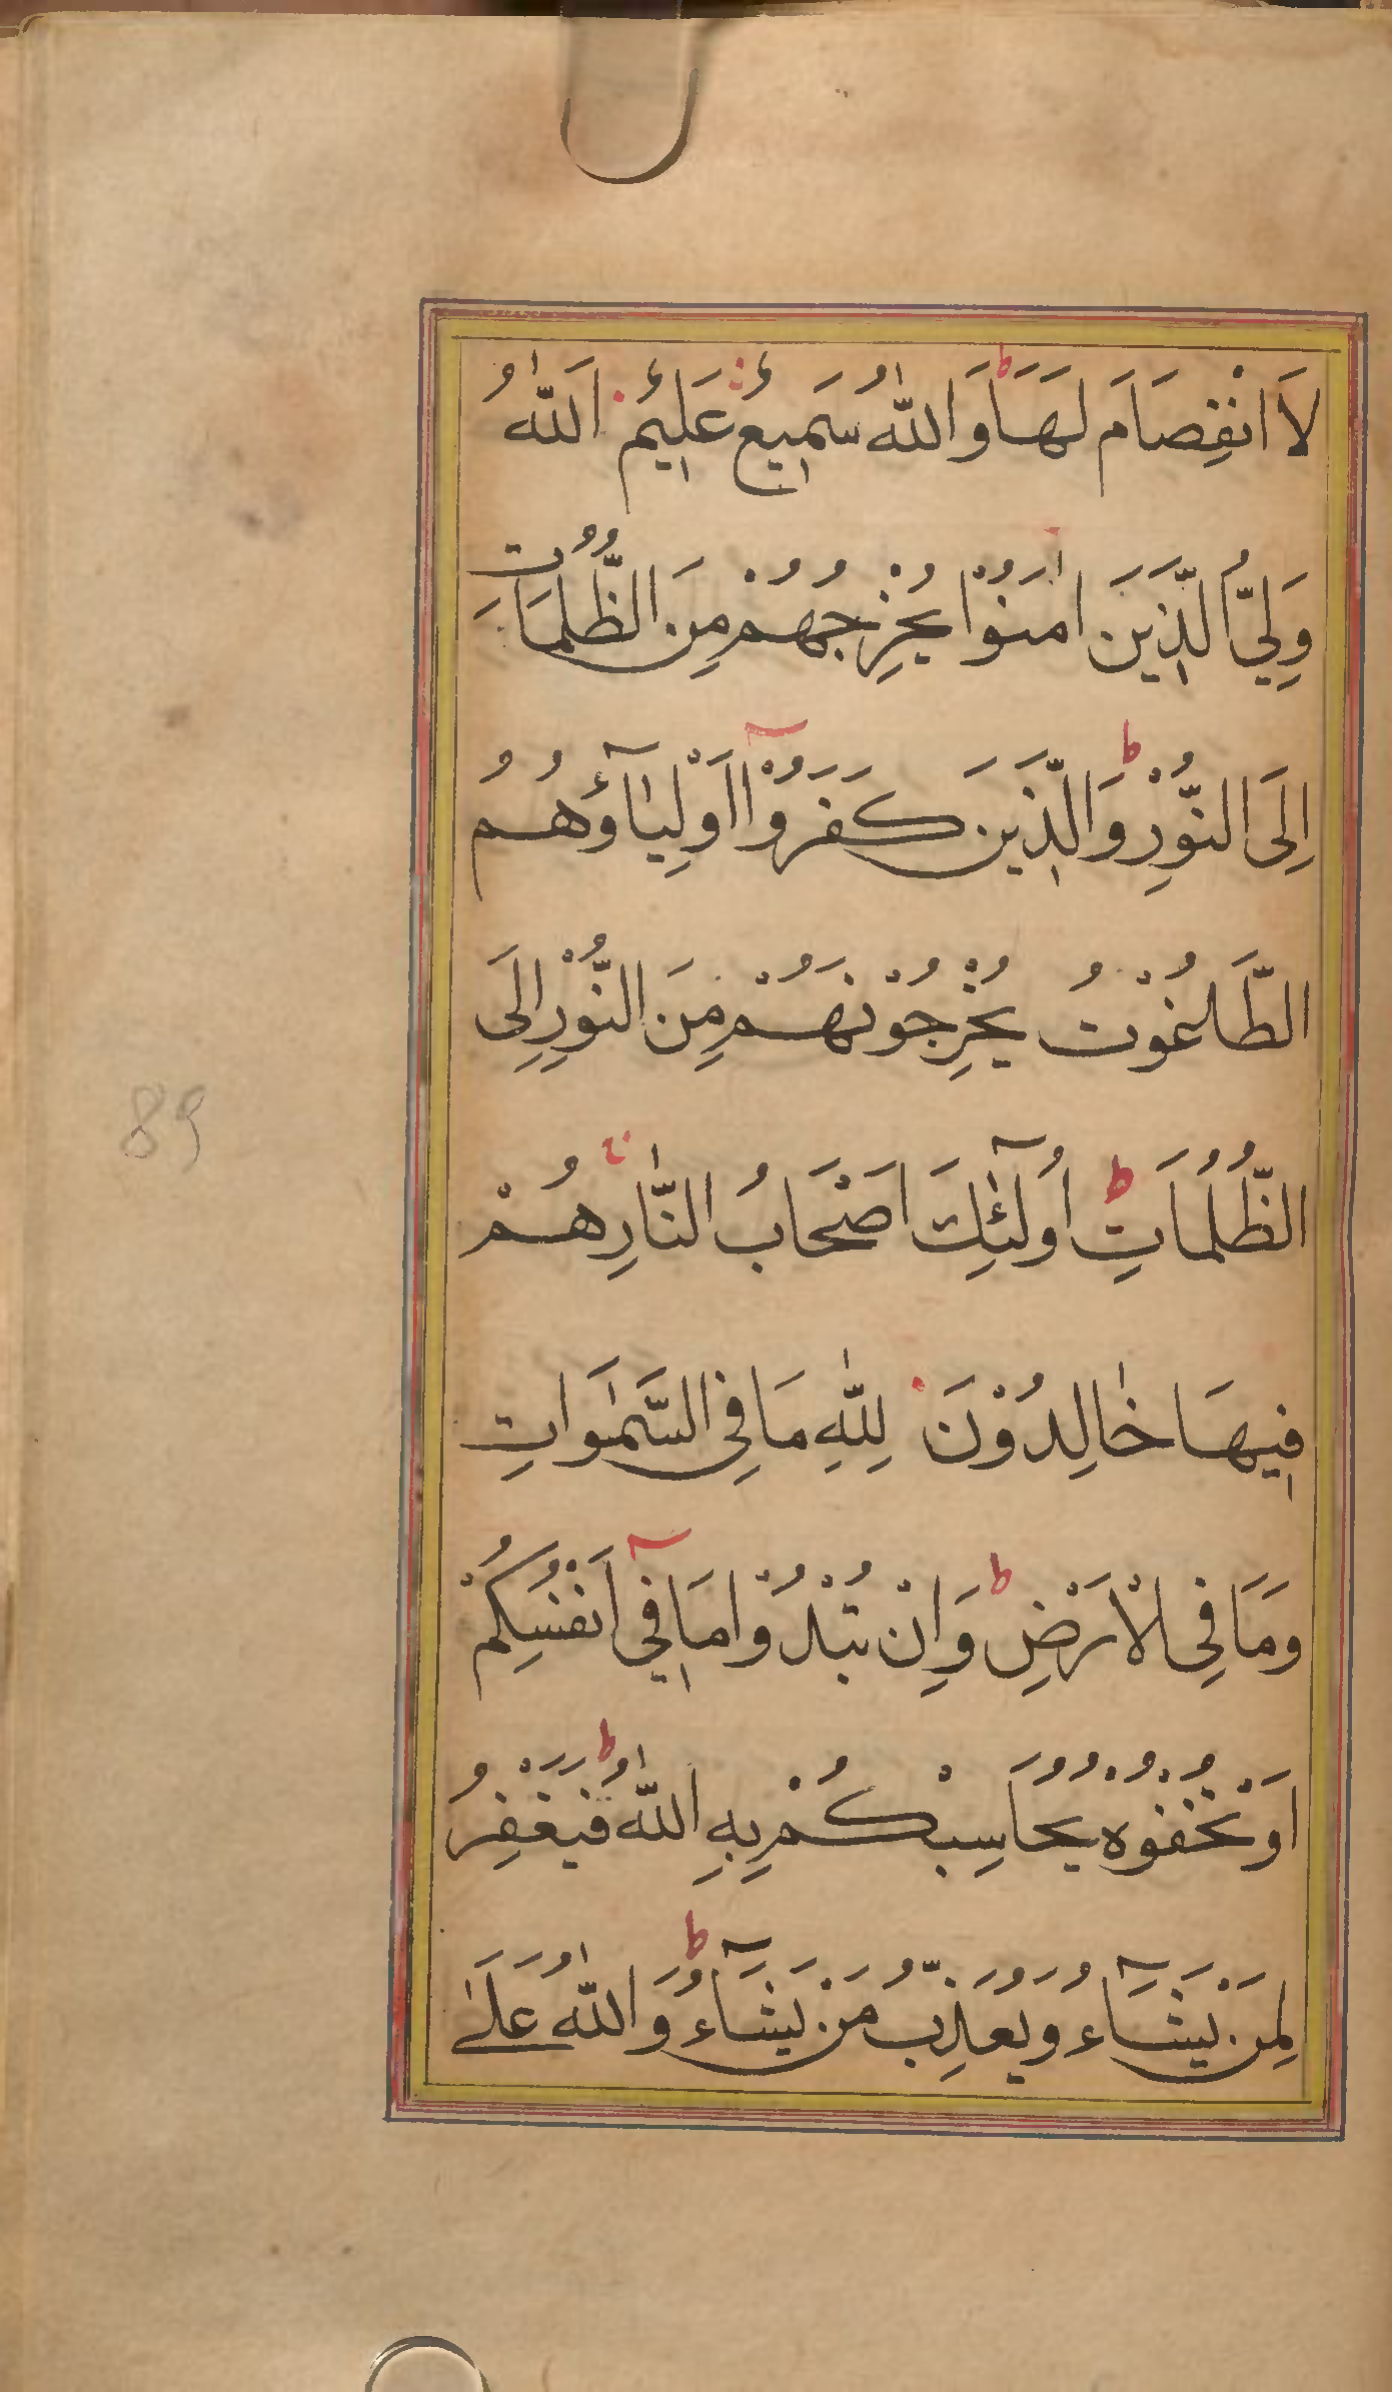 لَا انْفِصَامَ لَهَا ط وَاللّٰهُ سَمِيعٌ عَلِيمٌ اَللّٰهُ
وَلِيُّ الَّذِينَ اٰمَنُوْا يُخْرِجُهُمْ مِنَ الظُّلُمَاتِ
اِلَى النُّوْرِ ط وَالَّذِينَ كَفَرُوْآ اَوْلِيَآؤُهُمُ
الطَّاغُوْتُ يُخْرِجُوْنَهُمْ مِنَ النُّوْرِ اِلَى
الظُّلُمَاتِ ط اُولٰٓئِكَ اَصْحَابُ النَّارِ هُمْ
فِيهَا خَالِدُوْنَ لِلّٰهِ مَا فِي السَّمٰوَاتِ
وَمَا فِي الْاَرْضِ ط وَاِنْ تُبْدُوْا مَا فِيٓ اَنْفُسِكُمْ
اَوْ تُخْفُوْهُ يُحَاسِبْكُمْ بِهِ اللّٰهُ ط فَيَغْفِرُ
لِمَنْ يَشَآءُ وَيُعَذِّبُ مَنْ يَشَآءُ ط وَاللّٰهُ عَلَى
89